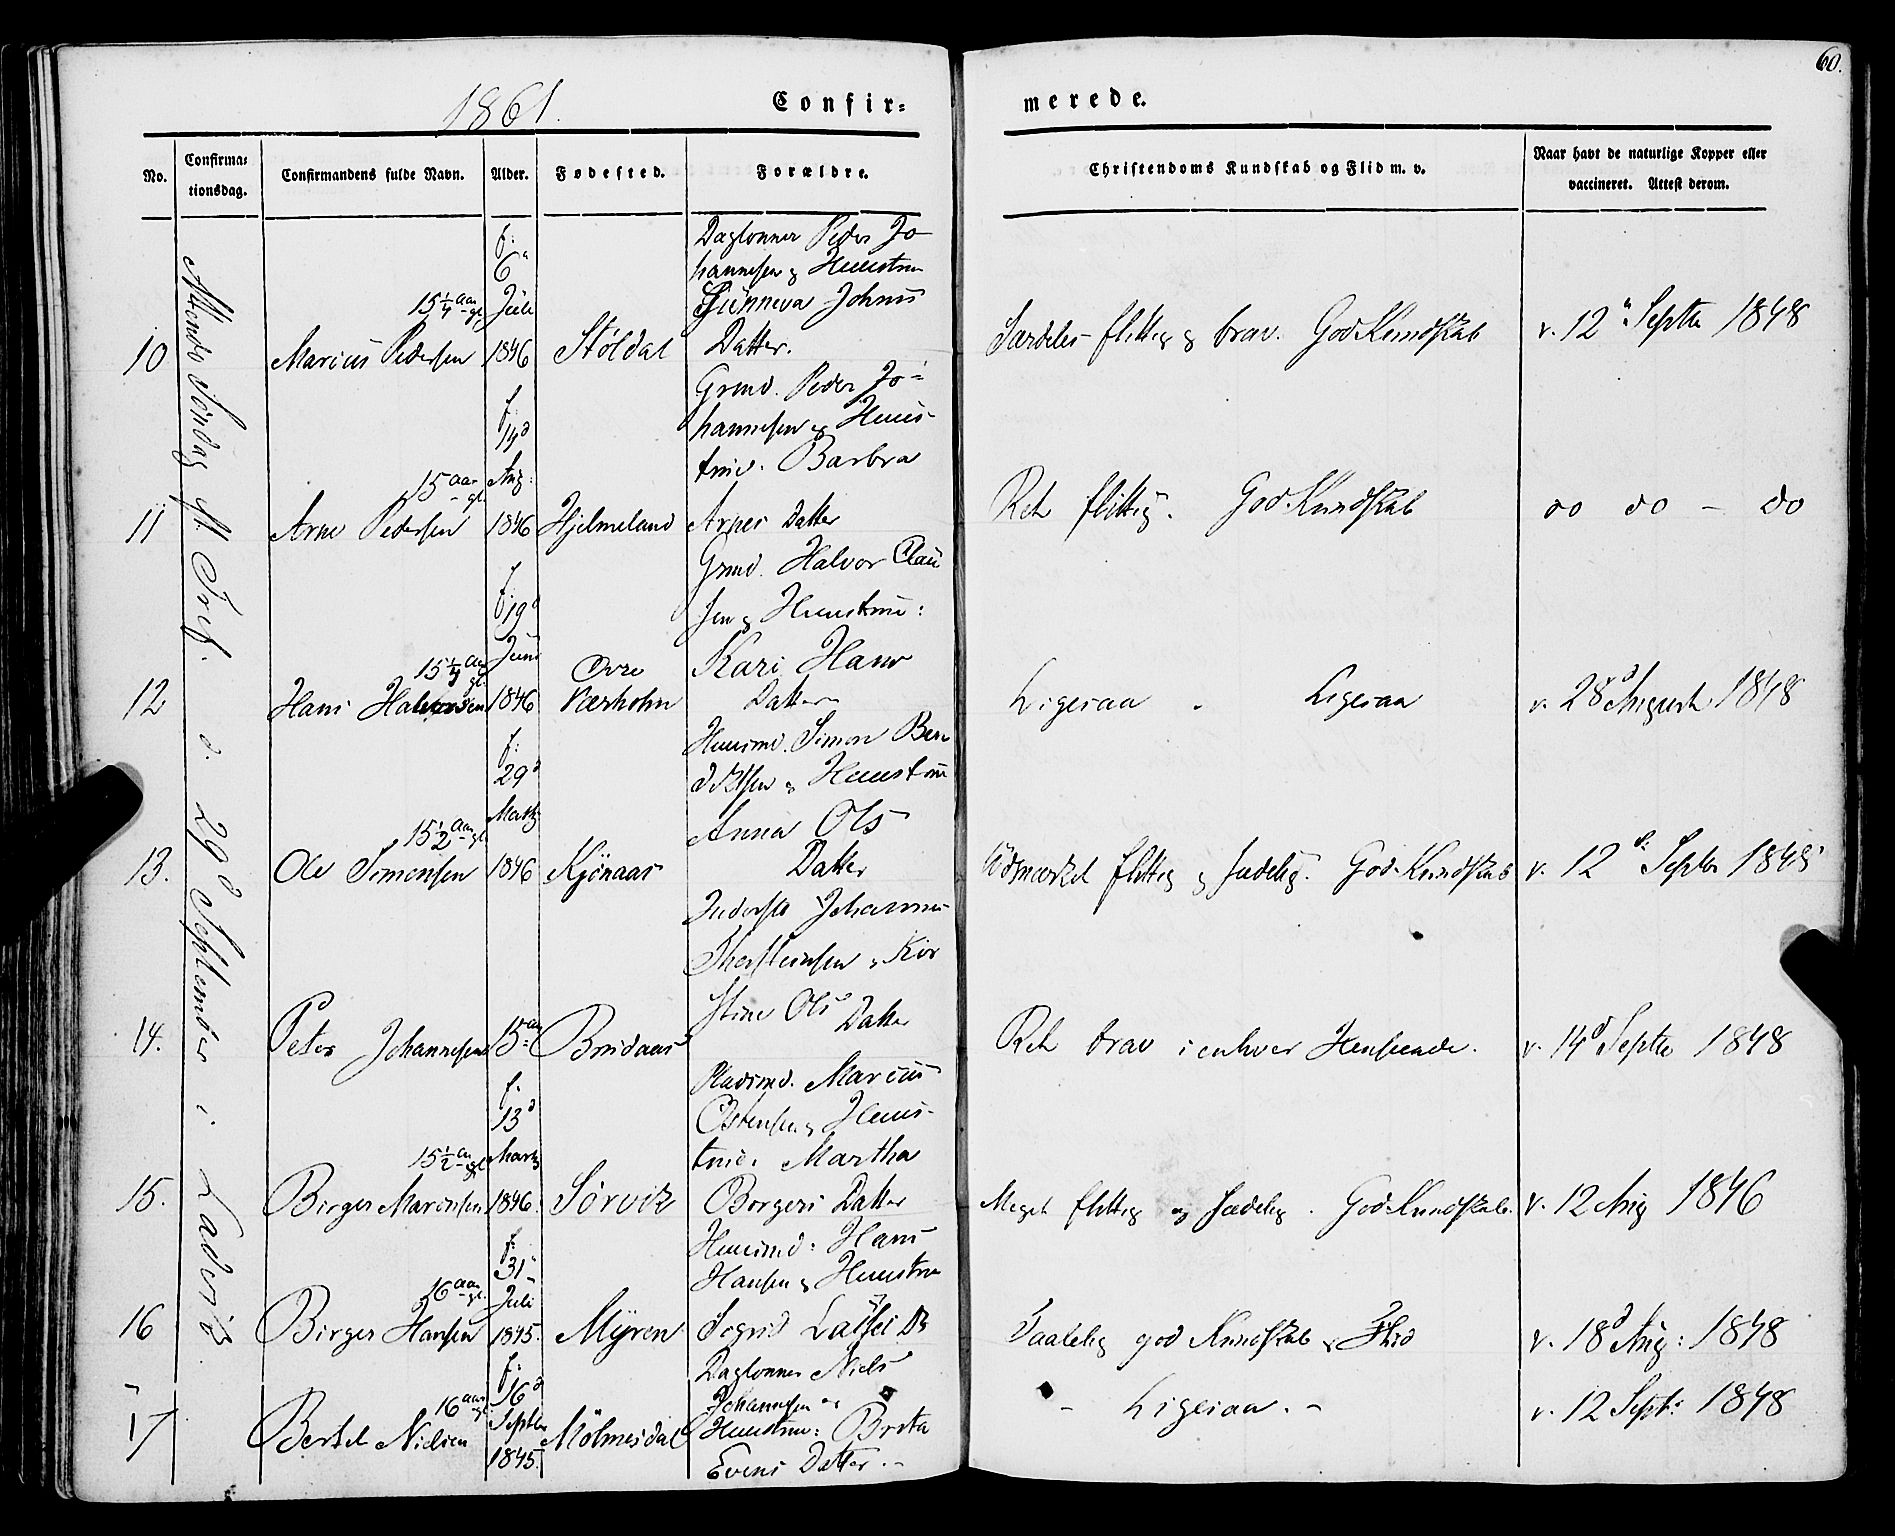 60.
1861.
Confir=
merede.
No.
Confirma=
tionsdag.
Confirmandens fulde Navn.
Alder.
Fødested.
Forældre.
Christendoms Kundskab og Flid m. v.
Naar havt de naturlige Kopper eller
vaccineret. Attest derom.
Søndag ft. Tref. d. 29d September i Ladvig
10
Marcus Pedersen
15 1/4 aar gl.
f. 6 Juli 1846
Stöldal
Daglønner Peder Jo-
hannesen og Huustru
Johns
Datter.
Særdeles flittig og brav. God Kundskab
v. 12 Septbr 1848
11
Arne Pedersen
15 aar gl.
f. 14d Aug: 1846
Hjelmeland
Grmd. Peder Jo-
hannesen og Huus-
true. Barbra
Arnes Datter
Ret flittig. God Kundskab
do do - do
12
Hans Halvorsen
15 1/4 aar gl.
f. 19d Juni 1846
Øvre Værholm
Grmd. Halvor Clau
sen og Huustrue:
Kari Hans
Datter
Ligesaa - Ligesaa
v. 28d August 1848
13.
Ole Simonsen
15 1/2 aar gl.
f. 29d Marts 1846
Kjönaas
Huusmd. Simon Bene
diktsen og Huustrue
Anna Ols
Datter
Udmærket flittig og sædelig. God Kundskab
v. 12 Septbr 1848
14.
Peter Johannesen
15 aar
Bredaas
Inderste Johannes
Thorsteinsen og Kir
stine Ols Datter
Ret brav i enhver Henseende.
v. 14d Septbr 1848
15.
Birger Marcusen
15 1/2 aar gl.
f. 13d Marts 1846.
Sørvik
Pladsmd. Marcus
Østensen og Huus-
true. Martha
Borgers Datter
Meget flittig og sædelig. God Kundskab.
v. 12 Aug 1846
16
Birger Hansen
16 aar gl.
f. 31 Juli 1845.
Myren
Huusmd: Hans
Hansen og Huustrue
Sigrid Lasses D
Taalelig god Kundskab og Flid
v. 18d Aug: 1848
17
Bertel Nielsen
16 aar gl.
f. 16d Septbr 1845.
Mölmesdal
Daglønner Niels
Johannesen og
Huustrue: Brita
Evens Datter.-
- Ligesaa. -
v. 12 Sept: 1848